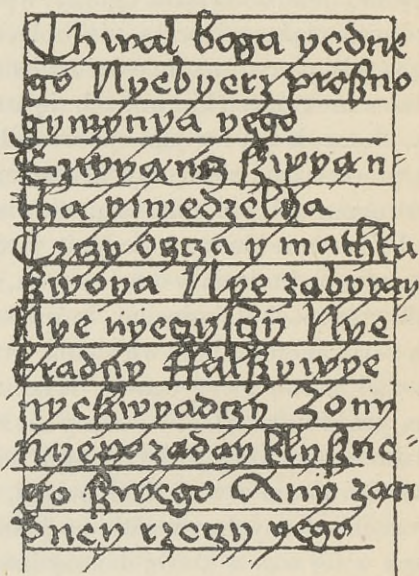 Chwal boga yedne
go Nyebyerz proszno
gymyenya yego
Czwyancz szwyan-
tha ynyedzelya
Czczy oycza y mathka
szwoya Nye zabyyay
Nye nyeczysczy Nye
kradny ffalszywye
nyeszwyadczy Zony
nyepozaday blyszne-
go szwego Any zad
dney rzeczy yego